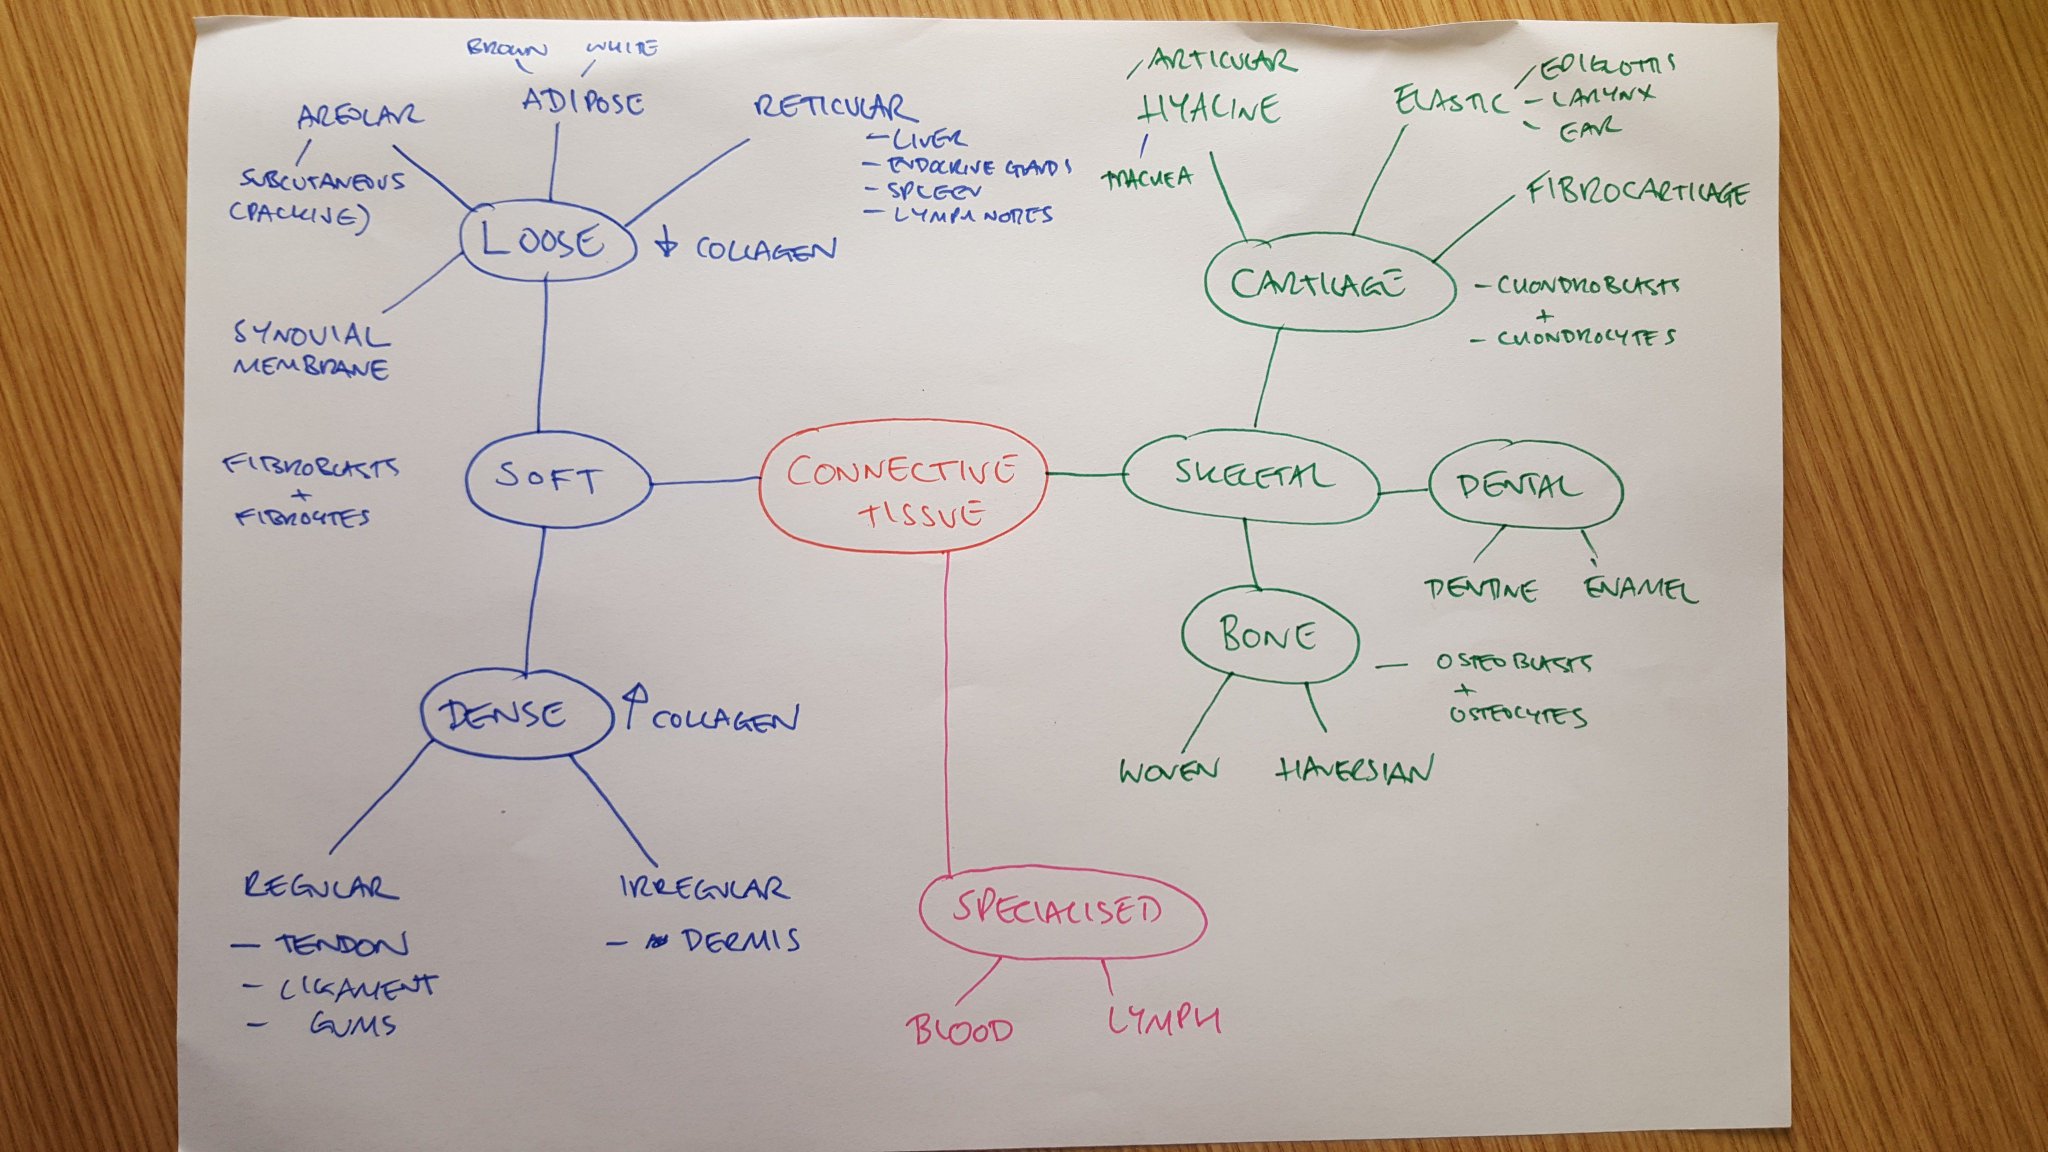 BROWN WHITE
ADIPOSE
AREOLAR
SUBCUTANEOUS
(PACKING)
RETICULAR
- LIVER
- ENDOCRINE GLANDS
- SPLEEN
- LYMPH NODES
LOOSE ↓ COLLAGEN
SYNOVIAL
MEMBRANE
FIBROBLASTS
+
FIBROCYTES
SOFT
DENSE ↑ COLLAGEN
REGULAR
- TENDON
- LIGAMENT
- GUMS
IRREGULAR
- DERMIS
CONNECTIVE
TISSUE
ARTICULAR
HYALINE
TRACHEA
ELASTIC
EPIGLOTTIS
- LARYNX
- EAR
FIBROCARTILAGE
CARTILAGE
- CHONDROBLASTS
+
- CHONDROCYTES
SKELETAL
DENTAL
DENTINE ENAMEL
BONE
- OSTEOBLASTS
+
OSTEOCYTES
WOVEN HAVERSIAN
SPECIALISED
BLOOD LYMPH